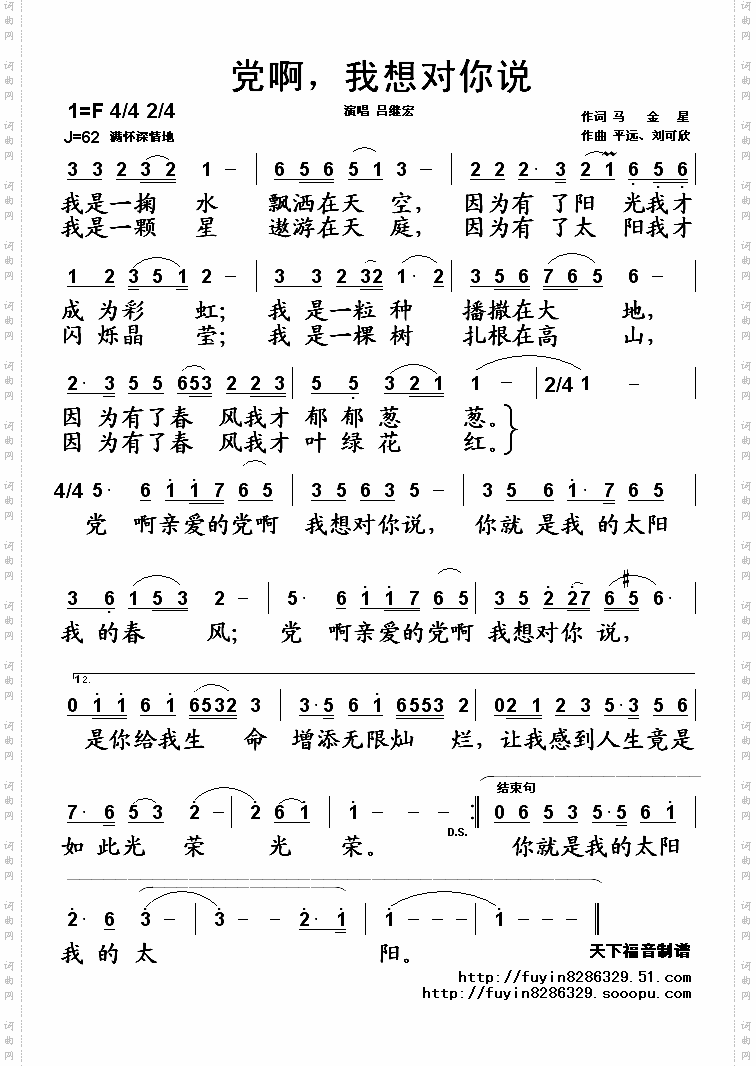 党啊，我想对你说
1=F 4/4 2/4
演唱 吕继宏
作词 马 金 星
J=62 满怀深情地
作曲 平远、刘可欣
3 3 2 3 2 1 – | 6 5 6 5 1 3 – | 2 2 2· 3 2 1 6 5 6
我是一掬 水 飘洒在天 空， 因为有 了阳 光我才
我是一颗 星 遨游在天 庭， 因为有 了太 阳我才
1 2 3 5 1 2 – | 3 3 2 32 1· 2 | 3 5 6 7 6 5 6 –
成 为彩 虹； 我 是一粒 种 播撒在大 地，
闪 烁晶 莹； 我 是一棵 树 扎根在高 山，
2· 3 5 5 653 2 2 3 | 5 5 3 2 1 | 1 – | 2/4 1 –
因 为有了春 风我才 郁 郁葱 葱。
因 为有了春 风我才 叶 绿花 红。
4/4 5· 6 1 1 7 6 5 | 3 5 6 3 5 – | 3 5 6 1· 7 6 5
党 啊亲爱的党啊 我想对你说， 你就 是我 的太阳
3 6 1 5 3 2 – | 5· 6 1 1 7 6 5 | 3 5 2 27 6 #5 6·
我 的春 风； 党 啊亲爱的党啊 我想对你 说，
12.
0 1 1 6 1 6532 3 | 3· 5 6 1 6553 2 | 02 1 2 3 5· 3 5
是你给我生 命 增添无限灿 烂， 让我感到人生竟是
结束句
7· 6 5 3 2 – | 2 6 1 | 1 – – – :‖ 0 6 5 3 5· 5 6 1
D.S.
如 此光 荣 光 荣。 你就是我的太阳
2· 6 3 – | 3 – – 2· 1 | 1 – 1 – – ‖
我 的 太 阳。
天下福音制谱
http://fuyin8286329.51.com
http://fuyin8286329.sooopu.com
词曲网